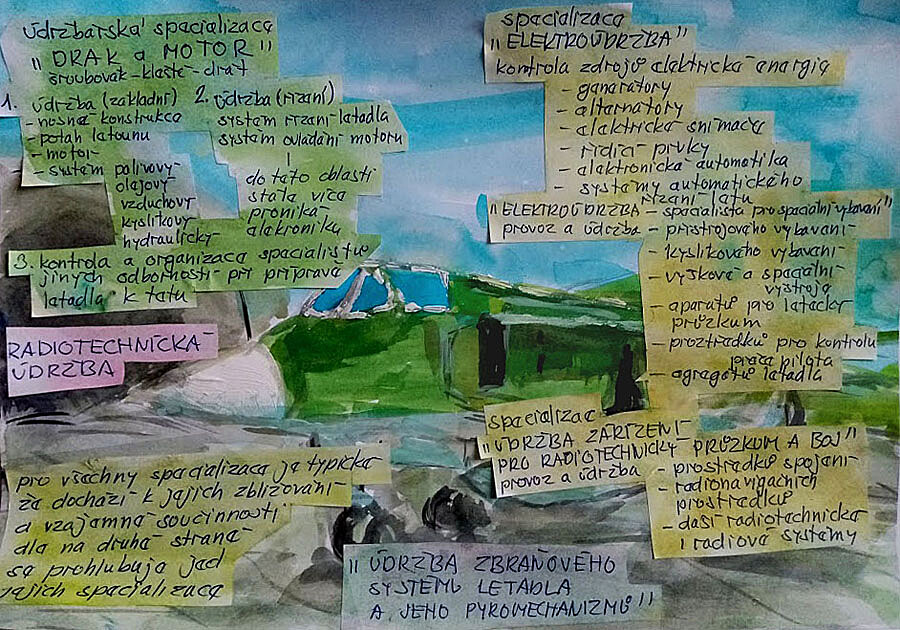 údržbářská specializace
"DRAK a MOTOR"
šroubovák-kleště-drát
1. údržba (základní)
- nosná konstrukce
- potah letounu
- motor
- systém palivový
olejový
vzduchový
kyslíkový
hydraulický
2. údržba (řízení)
systém řízení letadla
systém ovládání motoru
do této oblasti
stále více
proniká
elekroniku
3. kontrola a organizace specialistů
jiných odborností při přípravě
letadla k letu
RADIOTECHNICKÁ
ÚDRŽBA
pro všechny specializace je typické
že dochází k jejich zbližování
a vzájemné součinnosti
ale na druhé straně
se prohlubuje jed
jejich specializace
specializace
"ELEKTROÚDRŽBA"
kontrola zdrojů elektrické energie
- generátory
- alternátory
- elektrické snímače
- řídící prvky
- elektronická automatika
- systémy automatického
řízení letu
"ELEKTROÚDRŽBA - specialista pro speciální vybavení"
provoz a údržba - přístrojového vybavení
- kyslíkového vybavení
- výškové a speciální
výstroje
- aparátů pro letecký
průzkum
- prostředků pro kontrolu
práce pilota
- agregátů letadla
specializace
"ÚDRŽBA ZAŘÍZENÍ
PRO RADIOTECHNICKÝ PRŮZKUM A BOJ"
provoz a údržba - prostředků spojení
- radionavigačních
prostředků
- další radiotechnické
i radiové systémy
"ÚDRŽBA ZBRAŇOVÉHO
SYSTÉMU LETADLA
A JEHO PYROMECHANIZMŮ"